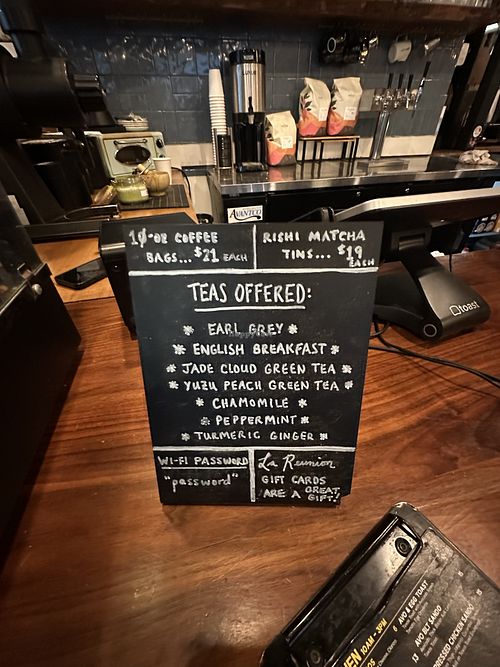 10-oz COFFEE
BAGS... $21 EACH
RISHI MATCHA
TINS... $19
EACH
TEAS OFFERED:
* EARL GREY *
* ENGLISH BREAKFAST *
* JADE CLOUD GREEN TEA *
* YUZU PEACH GREEN TEA *
* CHAMOMILE *
* PEPPERMINT *
* TURMERIC GINGER *
WI-FI PASSWORD
"password"
La Reunion
GIFT CARDS
ARE A GREAT
GIFT!
AVANTCO
toast
10AM - 3PM
AVO & EGG TOAST
AVO BLT SANDO
CHICKEN SANDO